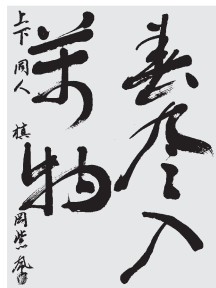 春風入
萬物
上下同人 槙 岡紫風